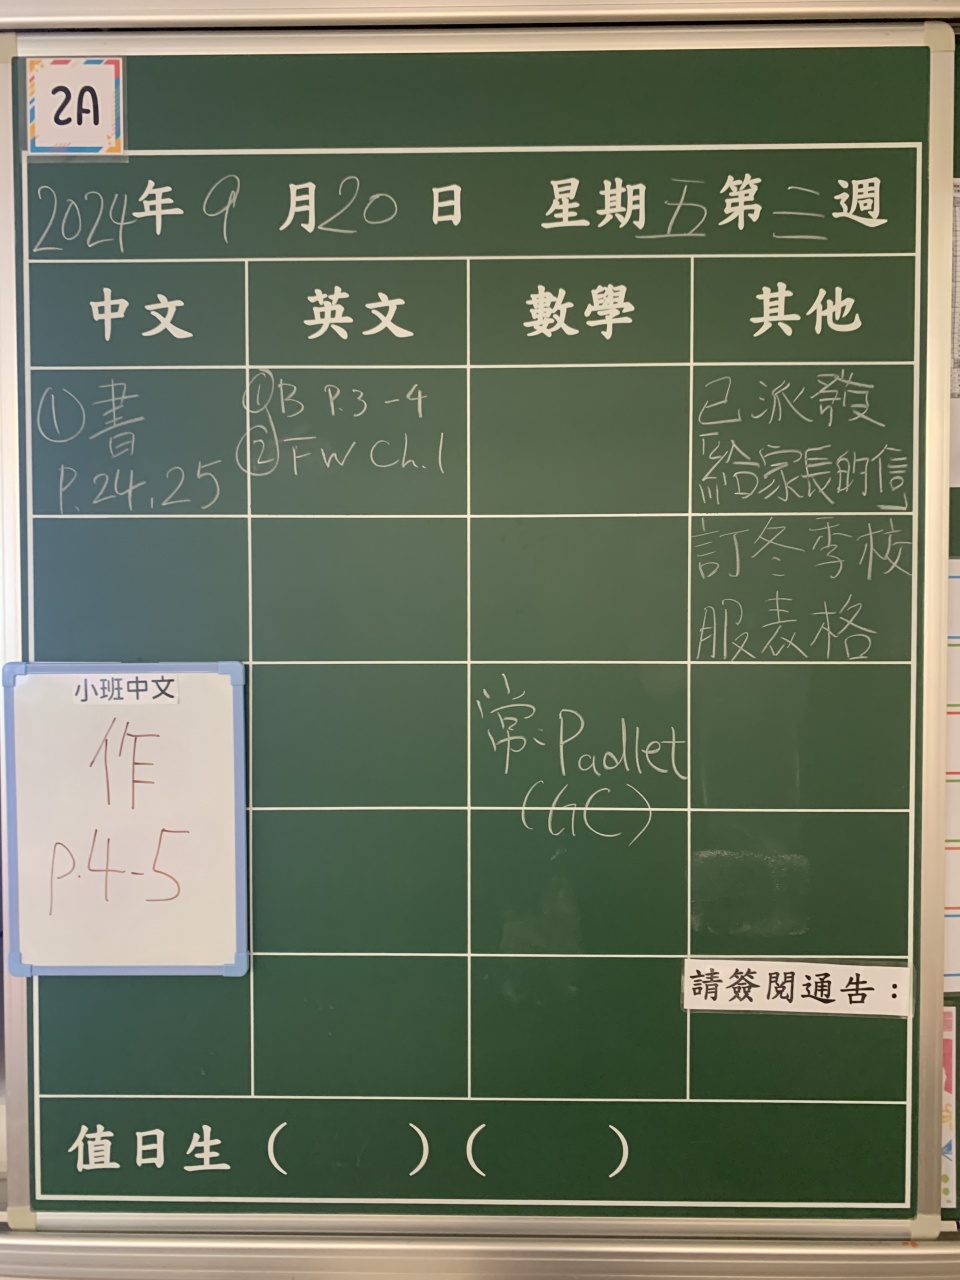 2A
2024年 9月20日 星期五第三週
中文 英文 數學 其他
①書
P.24,25
①B P.3-4
②FW Ch.1
已派發
「給家長的信」
訂冬季校
服表格
小班中文
作
p.4-5
常: Padlet
(GC)
請簽閱通告：
值日生 ( ) ( )